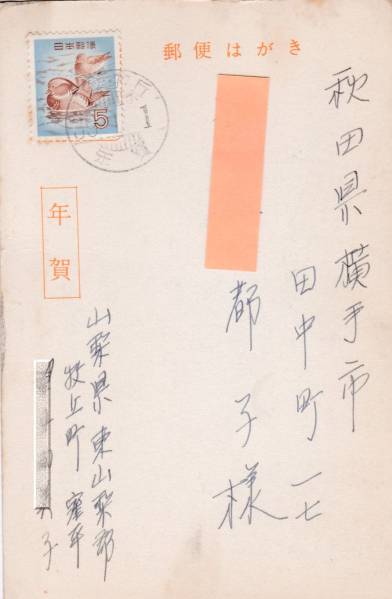 郵便はがき
日本郵便
5
年賀
秋田県横手市
田中町一七
都子様
山梨県東山梨郡
牧丘町窪平
子